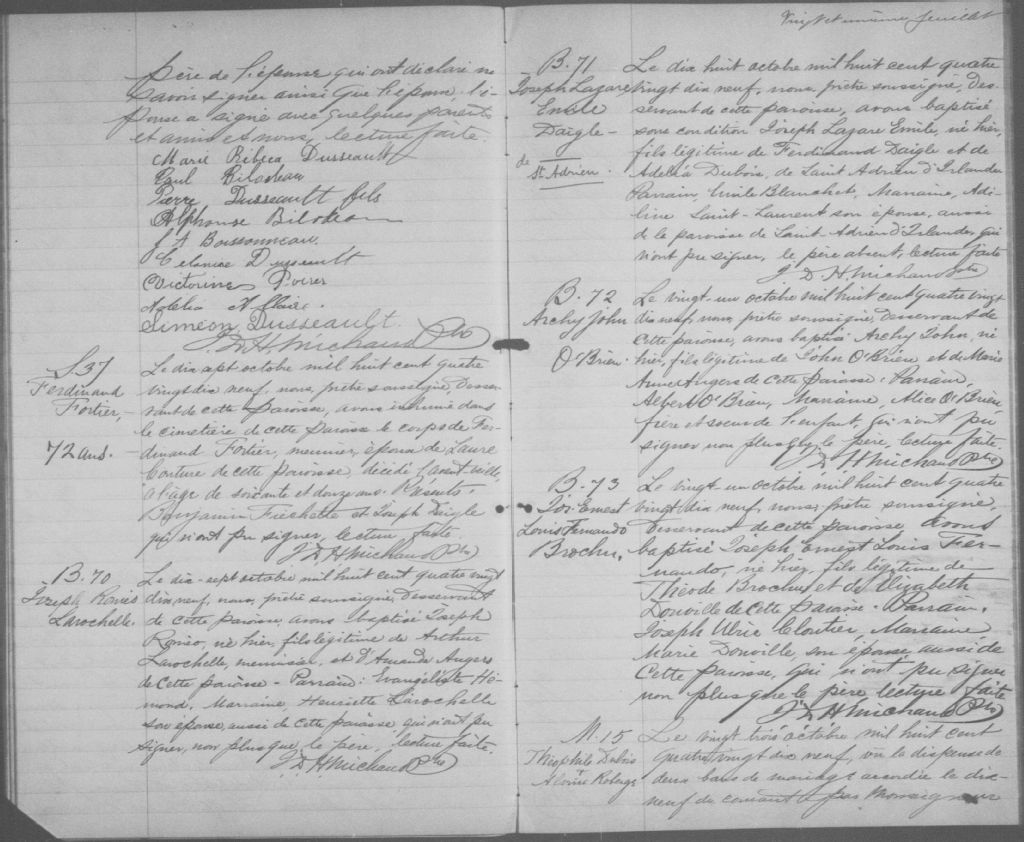 père de l'épouse qui ont déclaré ne
savoir signer ainsi que l'époux, l'é-
pouse a signé avec quelques parents
et amis et nous, lecture faite.
Marie Rébéca Dusseault
Paul Bilodeau
Pierre Dusseault fils
Alphonse Bilodeau
J A Boissonneau.
Celanise Dusseault
Victorine Poirer
Adelia Allaire.
Siméon Dusseault.
J. D. H. Michaud Ptre
S. 37
Ferdinand
Fortier,
72 ans.
Le dix sept octobre mil huit cent quatre
vingt dix neuf, nous, prêtre soussigné, desser-
vant de cette paroisse, avons inhumé dans
le cimetière de cette paroisse le corps de Fer-
dinand Fortier, meunier, époux de Laure
Couture de cette paroisse, décédé l'avant veille,
à l'âge de soixante et douze ans. Présents,
Benjamin Fréchette et Joseph Daigle
qui n'ont pu signer, lecture faite.
J. D. H. Michaud Ptre
B. 70
Joseph Roméo
Larochelle.
Le dix-sept octobre mil huit cent quatre vingt
dix neuf, nous, prêtre soussigné, desservant
de cette paroisse, avons baptisé Joseph
Roméo, né hier, fils légitime de Arthur
Larochelle, menuisier, et d'Amanda Angers
de cette paroisse - Parrain: Evangéliste Hé-
mond, Marraine, Henriette Larochelle
son épouse, aussi de cette paroisse, qui n'ont pu
signer, non plus que le père, lecture faite.
J. D. H Michaud Ptre
Vingt et unième feuillet
B. 71
Joseph Lazare
Emile
Daigle -
de
St. Adrien.
Le dix huit octobre mil huit cent quatre
vingt dix neuf, nous, prêtre soussigné, des-
servant de cette paroisse, avons baptisé
sous condition Joseph Lazare Emile, né hier,
fils légitime de Ferdinand Daigle et de
Adelia Dubois, de Saint Adrien d'Irlande.
Parrain, Emile Blanchet, Marraine, Adé-
line Saint-Laurent son épouse, aussi
de la paroisse de Saint Adrien d'Irlande, qui
n'ont pu signer, le père absent, lecture faite
J. D. H. Michaud Ptre
B. 72
Archy John
O'Brien
Le vingt-un octobre mil huit cent quatre vingt
dix neuf, nous, prêtre soussigné, desservant de
cette paroisse, avons baptisé Archy John, né
hier, fils légitime de John O'Brien et de Marie
Anne Angers de cette paroisse. Parrain,
Albert O'Brien, Marraine, Alice O'Brien
frère et soeur de l'enfant, qui n'ont pu
signer non plus que le père, lecture faite.
J. D. H Michaud Ptre
B. 73
Jos. Ernest
Louis Fernando
Brochu,
Le vingt-un octobre mil huit cent quatre
vingt dix neuf, nous, prêtre soussigné,
desservant de cette paroisse, avons
baptisé Joseph Ernest Louis Fer-
nando, né hier, fils légitime de
Théode Brochu et de Elizabeth
Douville de cette paroisse. Parrain,
Joseph Ulric Cloutier, Marraine,
Marie Douville, son épouse, aussi de
cette paroisse, qui n'ont pu signer
non plus que le père lecture faite
J. D. H. Michaud Ptre
M. 15
Théophile Dubois
Roberge
Le vingt trois octobre mil huit cent
quatre vingt dix neuf, vu la dispense de
deux bans de mariage accordée le dix
neuf du courant par Monseigneur